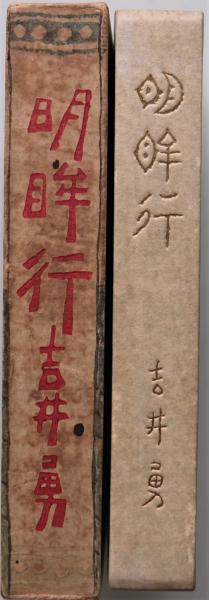 明眸行
吉井勇
明眸行
吉井勇